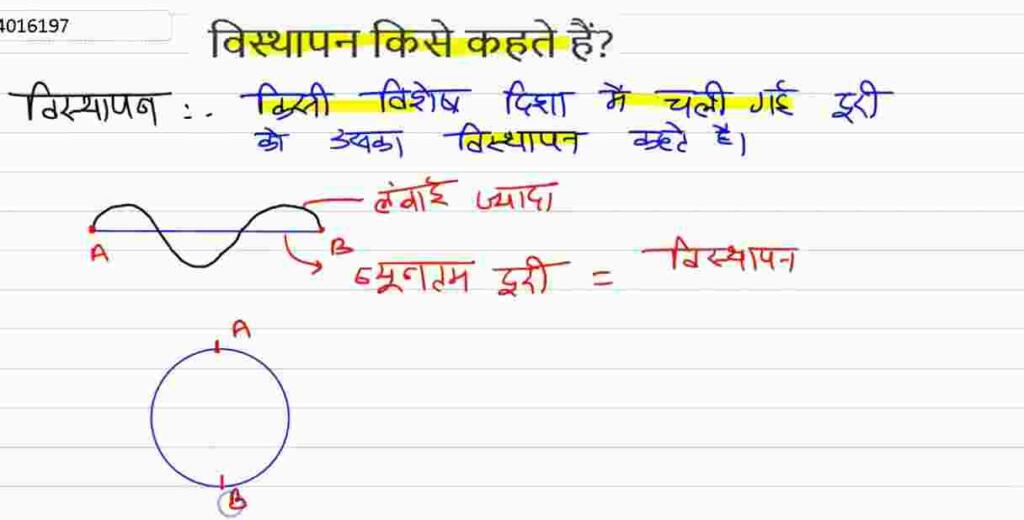 4016197
विस्थापन किसे कहते हैं?
विस्थापन :- किसी विशेष दिशा में चली गई दूरी
को उसका विस्थापन कहते है।
लंबाई ज्यादा
A B
न्यूनतम दूरी = विस्थापन
A
B